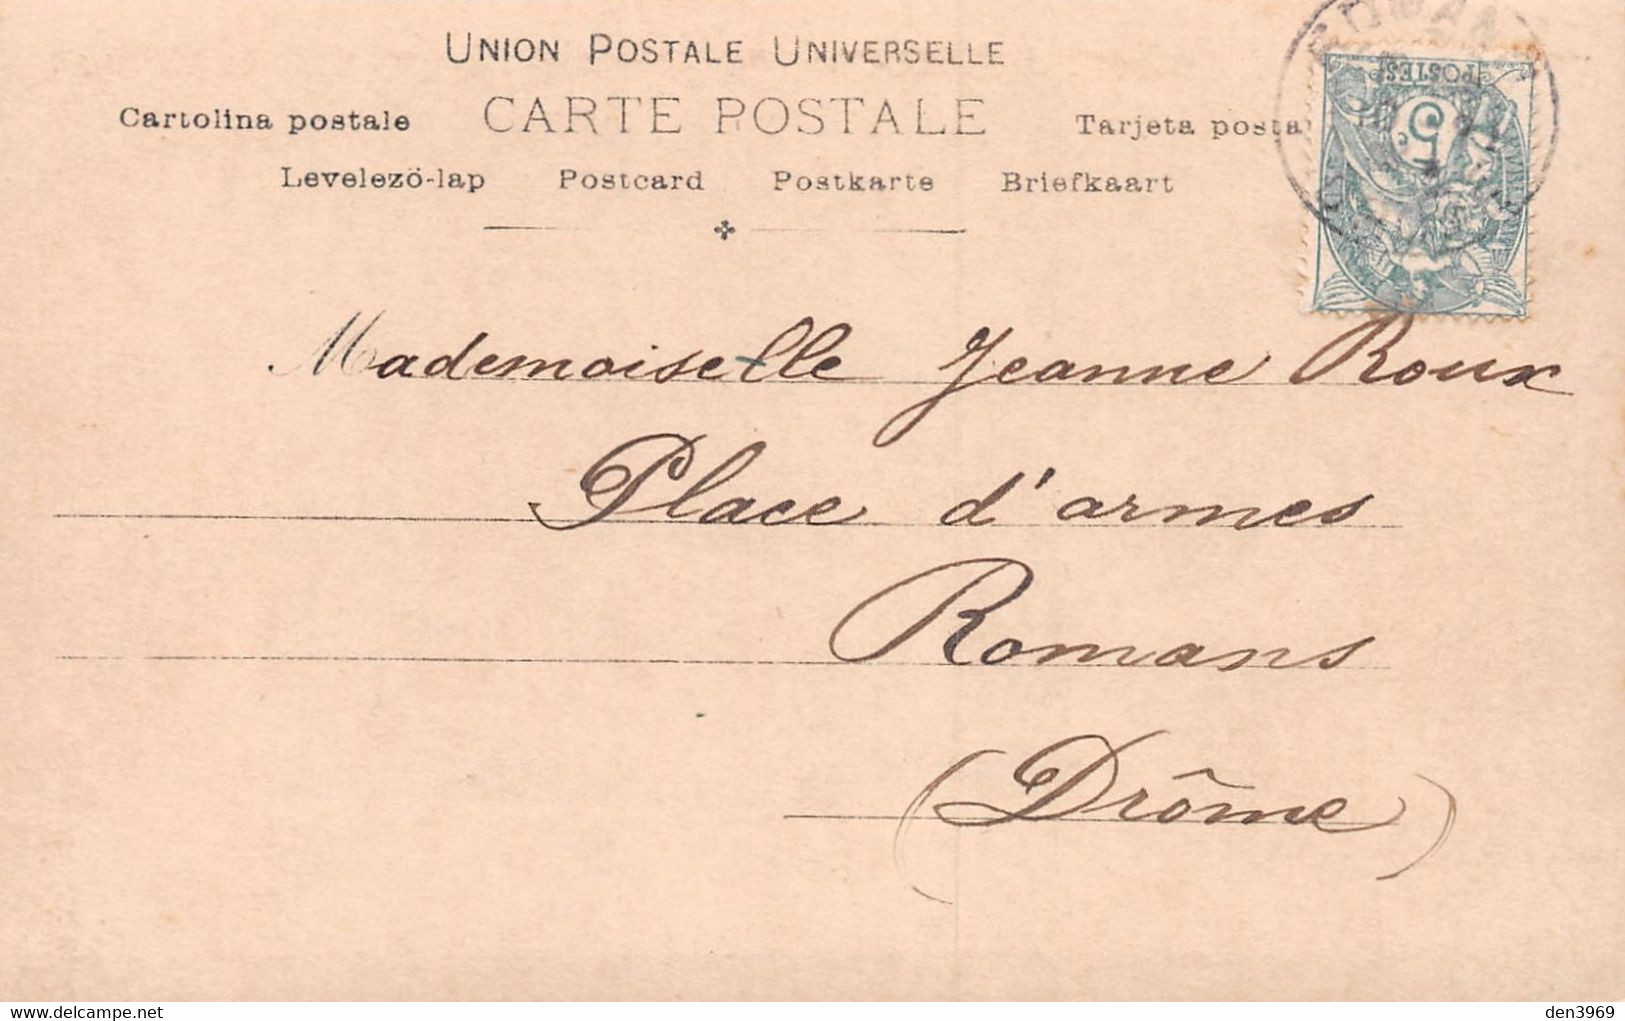 UNION POSTALE UNIVERSELLE
CARTE POSTALE
Cartolina postale Tarjeta posta
Levelezö-lap Postcard Postkarte Briefkaart
POSTES
5 c
Mademoiselle Jeanne Roux
Place d'armes
Romans
(Drôme)
den3969